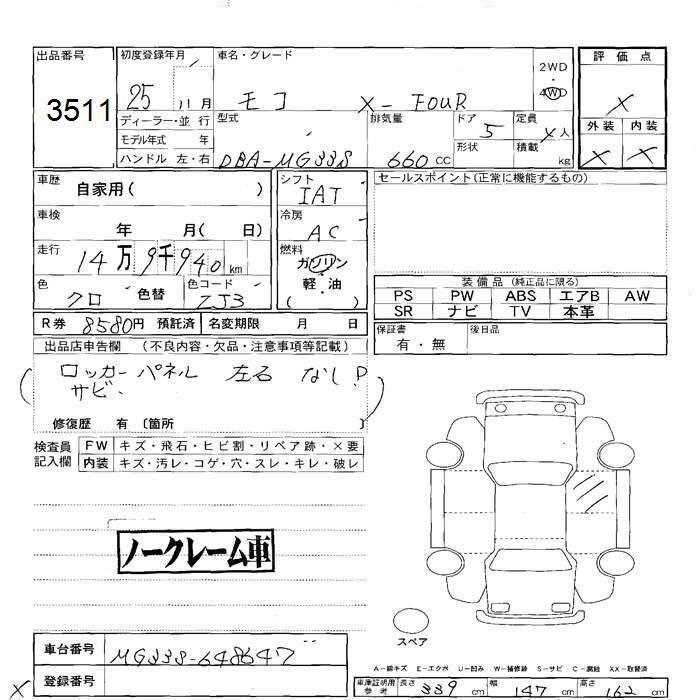 出品番号 初度登録年月 車名・グレード 2WD 評価点
3511 25 11月 モコ X-FOUR 4WD X
ディーラー・並行 型式 排気量 ドア 5 定員 人 外装 内装
モデル年式 年 形状 積載 X X
ハンドル 左・右 DBA-MG33S 660cc kg
車歴 自家用( ) シフト IAT セールスポイント(正常に機能するもの)
車検 年 月( 日) 冷房 AC
走行 14万9千940km 燃料 ガソリン
軽・油
色 クロ 色替 色コード ZJ3 ( )
装備品(純正品に限る)
PS PW ABS エアB AW
SR ナビ TV 本革
R券 8580円 預託済 名変期限 月 日
保証書 有・無 後日品
出品店申告欄 (不良内容・欠品・注意事項等記載)
ロッカーパネル 左右 なし!
サビ、
修復歴 有 〔箇所
検査員 FW キズ・飛石・ヒビ割・リペア跡・×要
記入欄 内装 キズ・汚レ・コゲ・穴・スレ・キレ・破レ
ノークレーム車
スペア
車台番号 MG33S-648647
A-線キズ E-エクボ U-凹み W-補修跡 S-サビ C-腐蝕 XX-取替済
X 登録番号
車庫証明用参考 長さ 339cm 幅 147cm 高さ 162cm